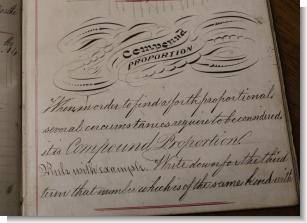 Compound
PROPORTION
When in order to find a forth proportional
several circumstances requere to be considered
it is Compound Proportion.
Rule with example. Write down for the third
term that number which is of the same kind with